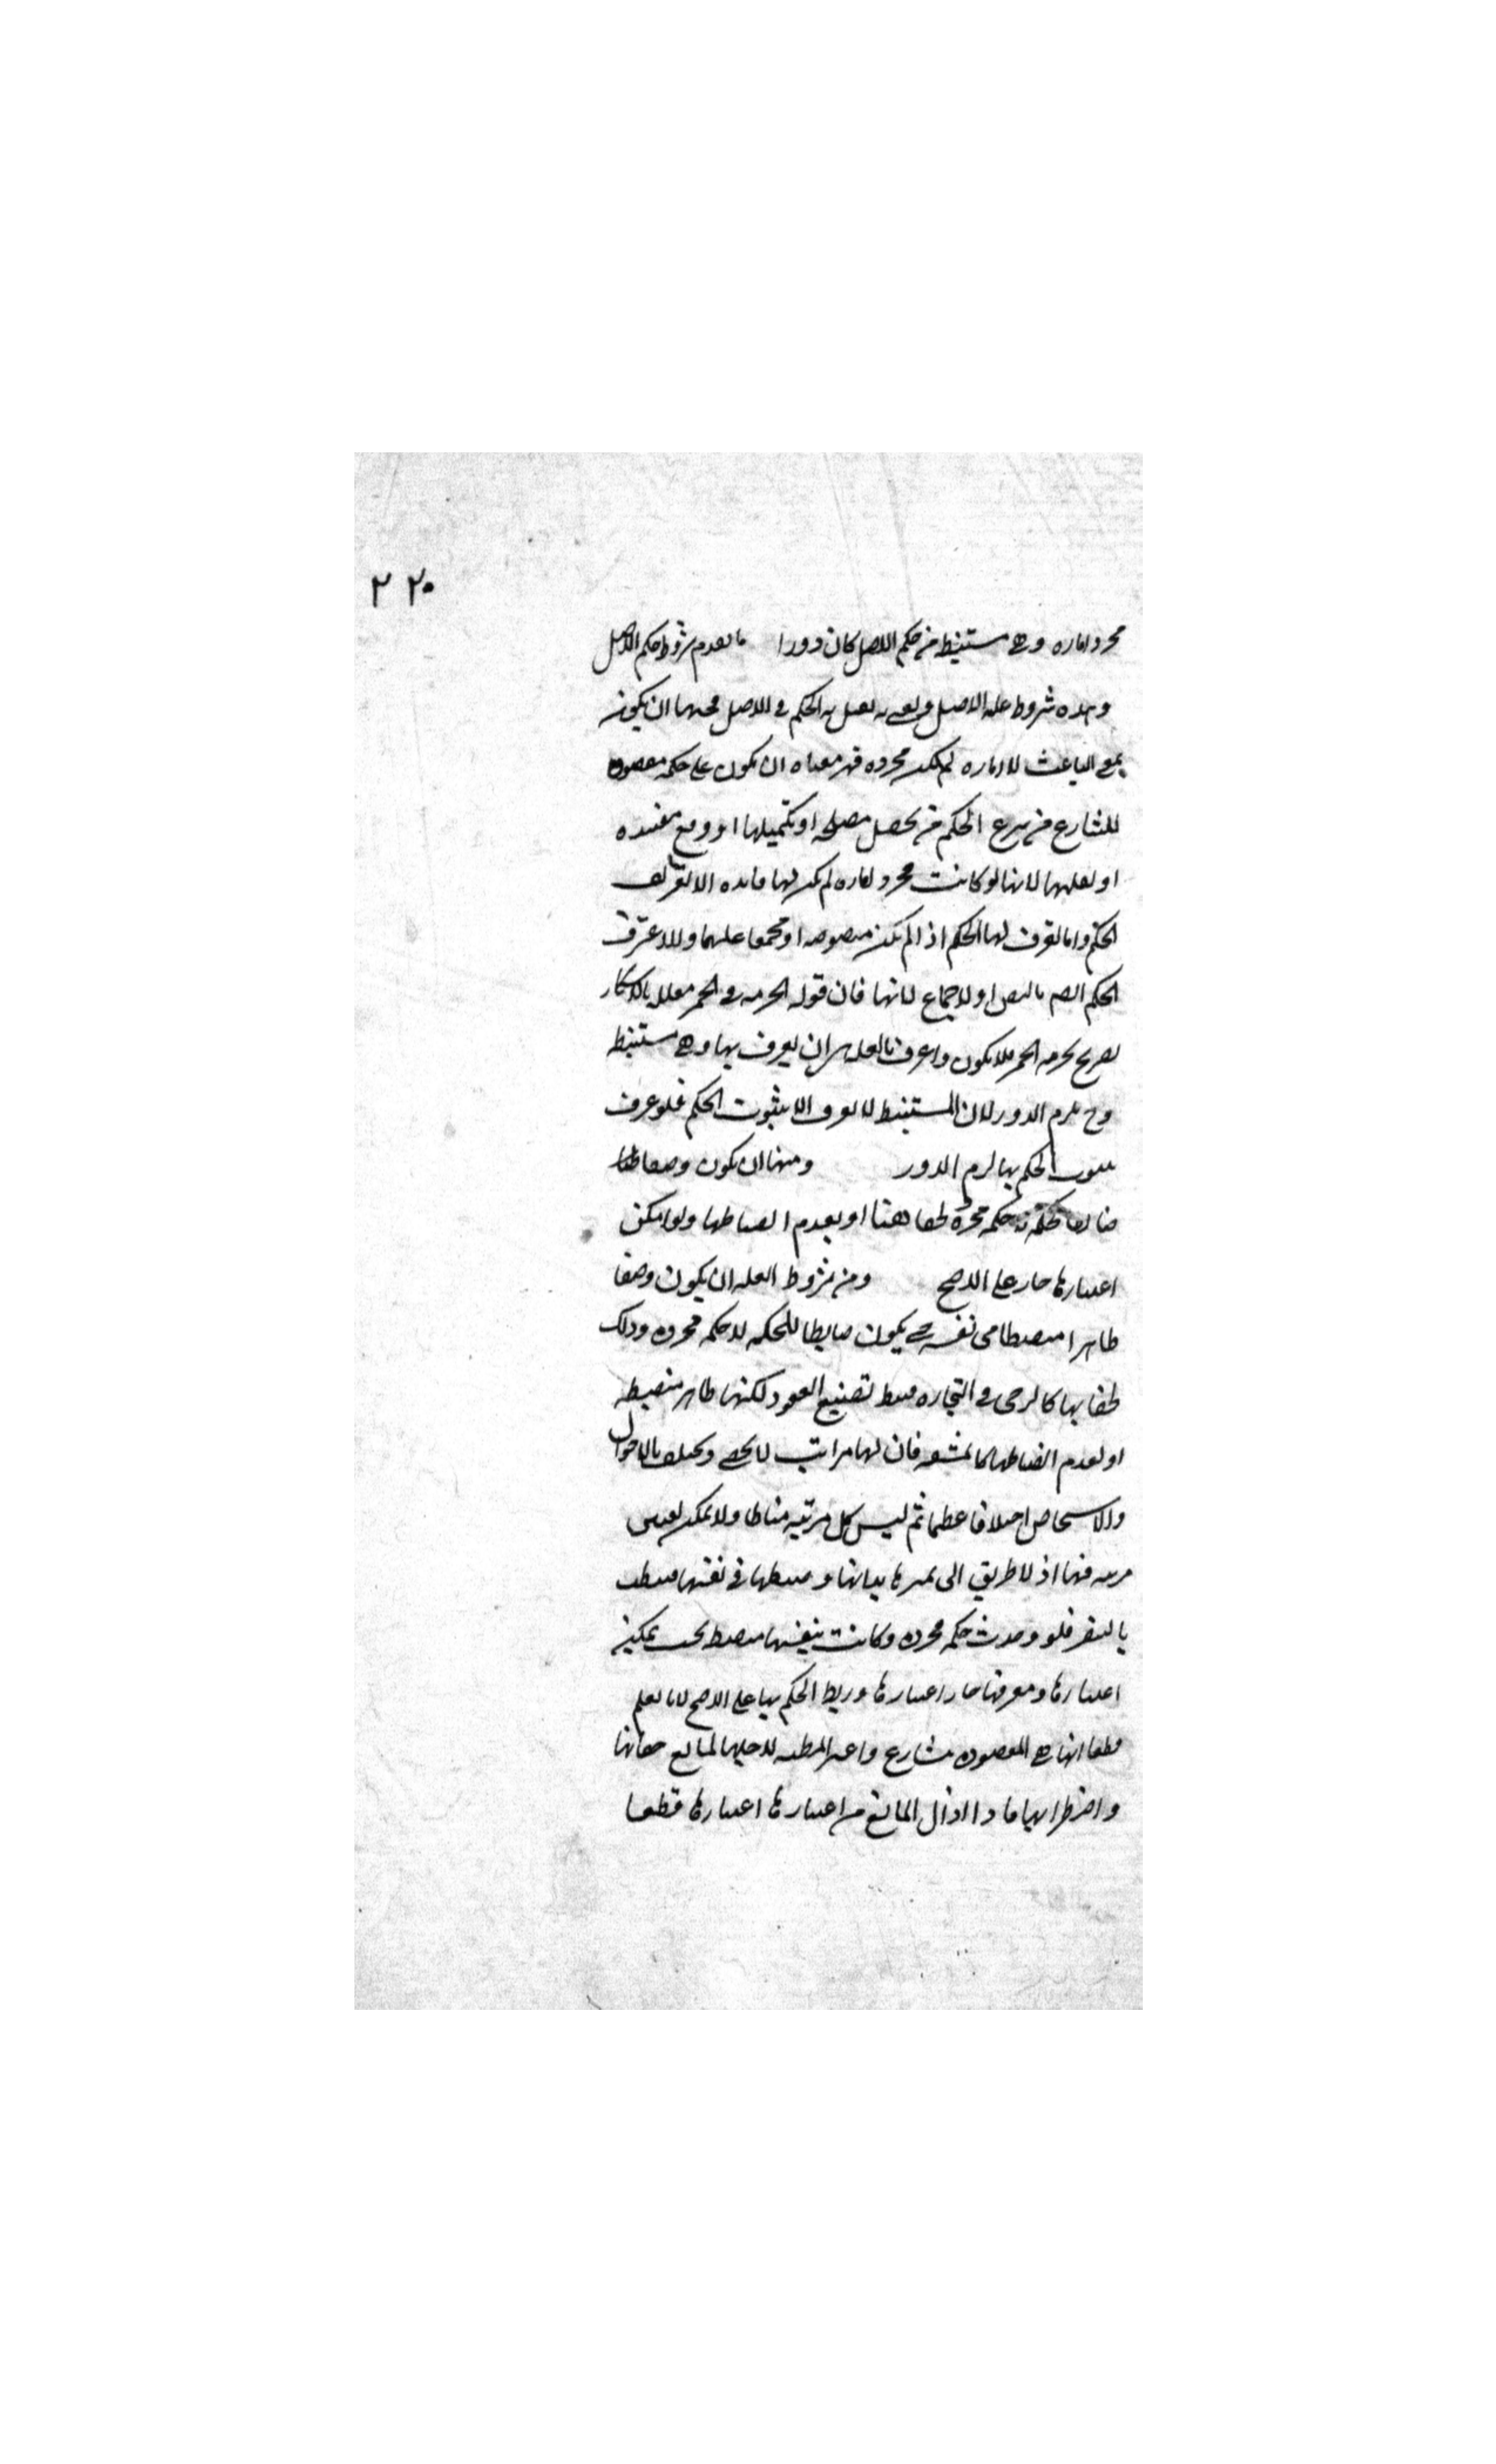 ٢٢٠
مجرد اماره وهى مستنبط من حكم الاصل كان دورا ما تعدم شروط حكم الاصل
وهده شروط عله الاصل به الحكم فى الاصل فمنها ان يكون
بمعى الباعث لا اماره لم يكن مجرده قدر معناه ان يكون على حكمه مقصوده
للشارع من شرع الحكم من تحصل مصلحه او تكميلها او دفع مفسده
او تعليلها لانها لو كانت مجرد اماره لم يكن لها فايده الا تعريف
الحكم وانما تعرف لها الحكم اذا لم تكن منصوصه او مجمعا عليها والا عرف
الحكم بالنص او الاجماع لانها فان قوله الحرمه فى الخمر معلله بالاسكار
تصريح بحرمه الخمر فلا يكون وهى مستنبط
وح يلزم الدور لان المستنبط لا تعرف الا بثبوت الحكم فلو عرف
ثبوت الحكم بها لزم الدور ومنها ان يكون وصفا ظاهرا
حكمه مجردة لخفاها او لعدم انضباطها ولو امكن
اعتبارها جاز على الاصح ومن شروط العله ان يكون وصفا
ظاهرا منضبطا فى نفسه حتى يكون ضابطا للحكمه لا حكمه مجرده ودلك
لخفايها كالرضى فى التجاره فنيط بصيغ العقود لكنها ظاهر منضبطه
او لعدم انضباطها كالمشقه فان لها مراتب لا تحصى وتختلف بالاحوال
والاسخاص اختلافا عظيما ثم ليس كل مرتبه مناطا ولا يمكن تعيين
مرتبه منها اذ لا طريق الى تميزها بذاتها وضبطها فى نفسها فنيطت
بالسفر فلو وجدت حكمه مجرده وكانت بنفسها منضبط بحيث يمكن
اعتبارها ومعرفتها جاز اعتبارها وربط الحكم بها على الاصح لانا نعلم
قطعا انها هى المقصوده للشارع واعتبر المظنه لاجلها لمانع خفائها
واضطرابها فاذا زال المانع من اعتبارها اعتبارها قطعا